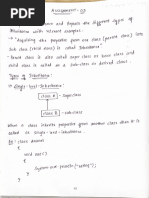 Assignment - 03
Define Inheritance and Explain the different types of
Inheritance with relevent examples.
→ "Acquiring the properties from one class [parent class] into
Sub class [child class] is called as Inheritance"
* Parent class is also called as super class or base class and
child class is called as a sub-class or derived class.
Types of Inheritance:
1) Single-level Inheritance:
class A → Super class
class B → Sub class
A class which inherits properties from another class then it is
called as Single-level Inheritance.
Ex: class Animal
{
void eat()
{
System.out.println("eating");
}